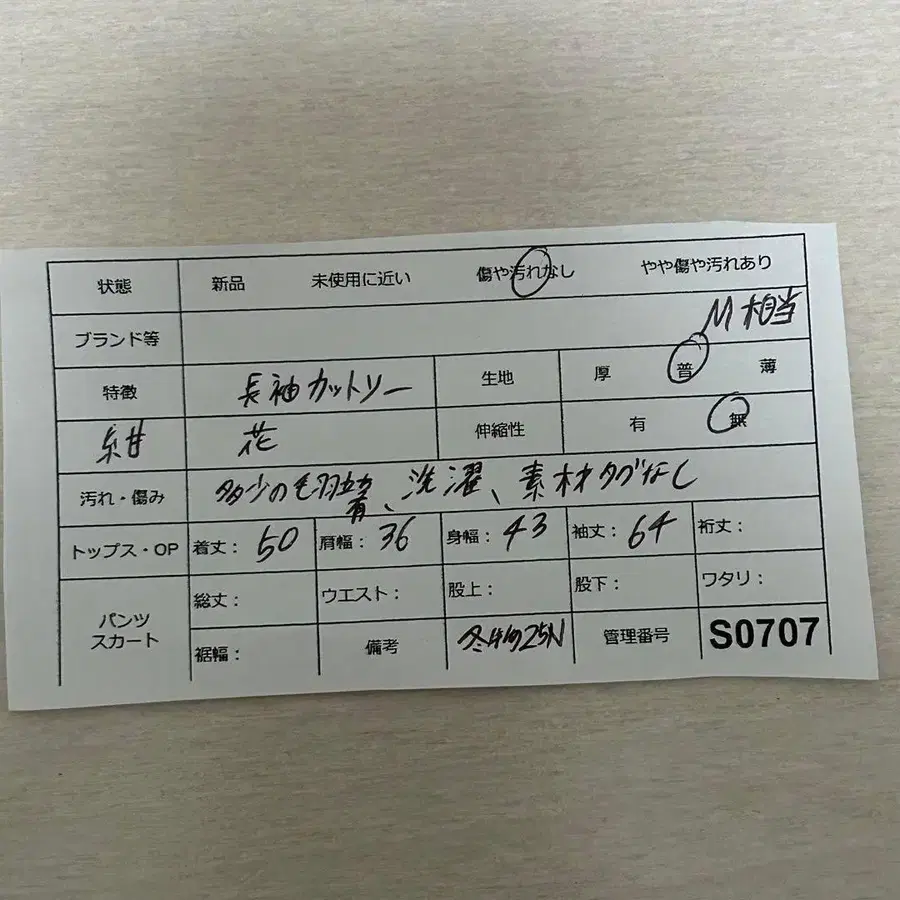 状態 新品 未使用に近い 傷や汚れなし やや傷や汚れあり
ブランド等 M相当
特徴 長袖カットソー 生地 厚 普 薄
紺 花 伸縮性 有 無
汚れ・傷み 多少の毛羽立ち、洗濯、素材タグなし
トップス・OP 着丈: 50 肩幅: 36 身幅: 43 袖丈: 64 裄丈:
パンツ スカート 総丈: ウエスト: 股上: 股下: ワタリ:
裾幅: 備考 冬物25N 管理番号 S0707